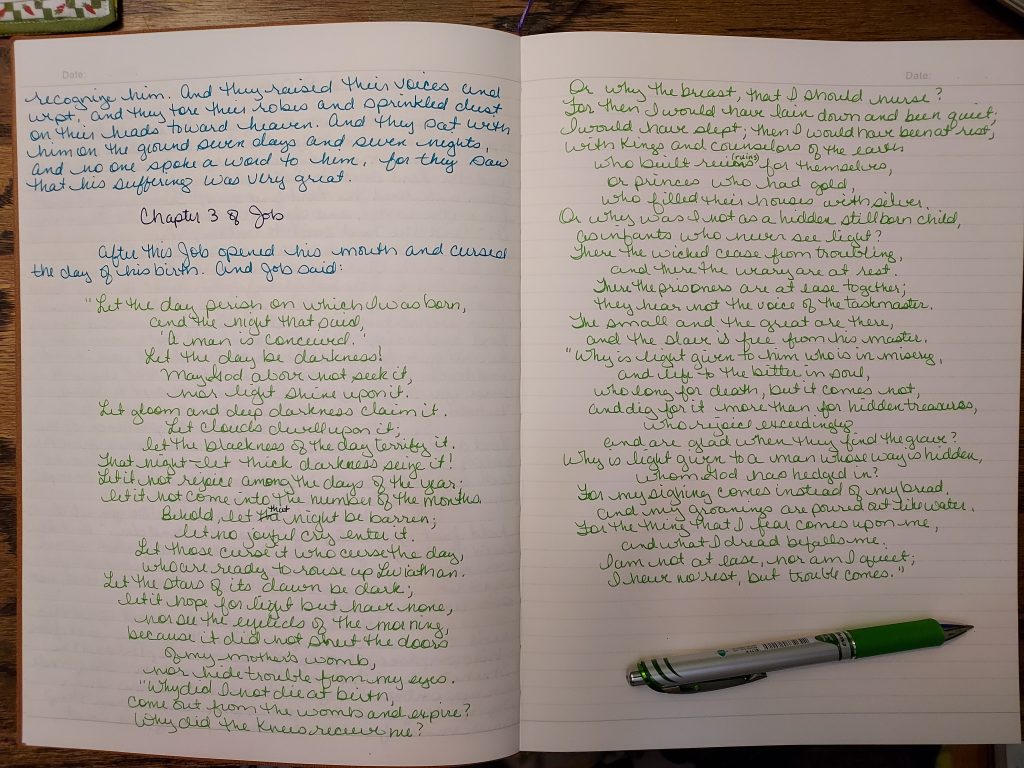 Date:
recognize him. And they raised their voices and
wept, and they tore their robes and sprinkled dust
on their heads toward heaven. And they sat with
him on the ground seven days and seven nights,
and no one spoke a word to him, for they saw
that his suffering was very great.
Chapter 3 of Job
After this Job opened his mouth and cursed
the day of his birth. And Job said:
"Let the day perish on which I was born,
and the night that said,
'A man is conceived.'
Let the day be darkness!
May God above not seek it,
nor light shine upon it.
Let gloom and deep darkness claim it.
Let clouds dwell upon it;
let the blackness of the day terrify it.
That night-let thick darkness seize it!
Let it not rejoice among the days of the year;
let it not come into the number of the months.
Behold, let that night be barren;
let no joyful cry enter it.
Let those curse it who curse the day,
who are ready to rouse up Leviathan.
Let the stars of its dawn be dark;
let it hope for light but have none,
nor see the eyelids of the morning,
because it did not shut the doors
of my mother's womb,
nor hide trouble from my eyes.
"Why did I not die at birth,
come out from the womb and expire?
Why did the knees receive me?
Date:
Or why the breast, that I should nurse?
For then I would have lain down and been quiet;
I would have slept; then I would have been at rest,
with Kings and counselors of the earth
who built (ruins) for themselves,
or princes who had gold,
who filled their houses with silver.
Or why was I not as a hidden stillborn child,
as infants who never see light?
There the wicked cease from troubling,
and there the weary are at rest.
There the prisoners are at ease together;
they hear not the voice of the taskmaster.
The small and the great are there,
and the slave is free from his master.
"Why is light given to him who is in misery,
and life to the bitter in soul,
who long for death, but it comes not,
and dig for it more than for hidden treasures,
who rejoice exceedingly
and are glad when they find the grave?
Why is light given to a man whose way is hidden,
whom God has hedged in?
For my sighing comes instead of my bread,
and my groanings are poured out like water.
For the thing that I fear comes upon me,
and what I dread befalls me.
I am not at ease, nor am I quiet;
I have no rest, but trouble comes."